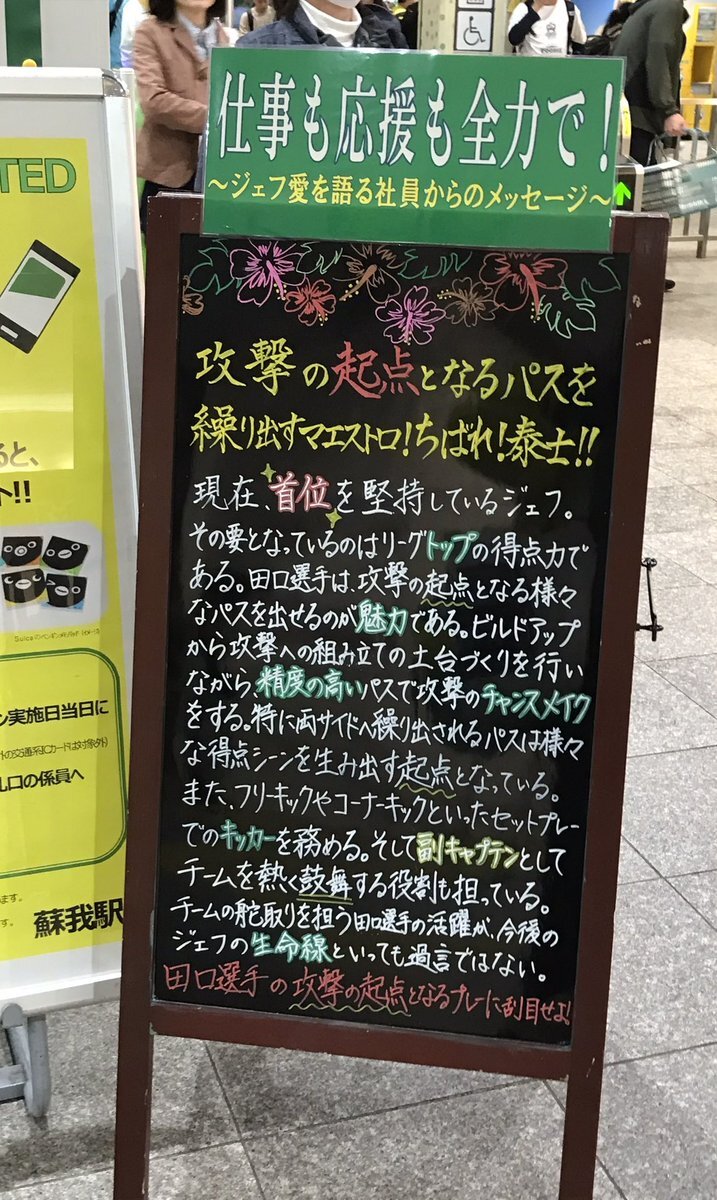 仕事も応援も全力で！
～ジェフ愛を語る社員からのメッセージ～
攻撃の起点となるパスを
繰り出すマエストロ！ちばれ！泰士！！
現在、首位を堅持しているジェフ。
その要となっているのはリーグトップの得点力で
ある。田口選手は、攻撃の起点となる様々
なパスを出せるのが魅力である。ビルドアップ
から攻撃への組み立ての土台づくりを行い
ながら、精度の高いパスで攻撃のチャンスメイク
をする。特に両サイドへ繰り出されるパスは様々
な得点シーンを生み出す起点となっている。
また、フリーキックやコーナーキックといったセットプレー
でのキッカーを務める。そして副キャプテンとして
チームを熱く鼓舞する役割も担っている。
チームの舵取りを担う田口選手の活躍が、今後の
ジェフの生命線といっても過言ではない。
田口選手の攻撃の起点となるプレーに刮目せよ！
TED
ると、
ト!!
ン実施日当日に
外の交通系ICカードは対象外)
札口の係員へ
ます。
す。
蘇我駅